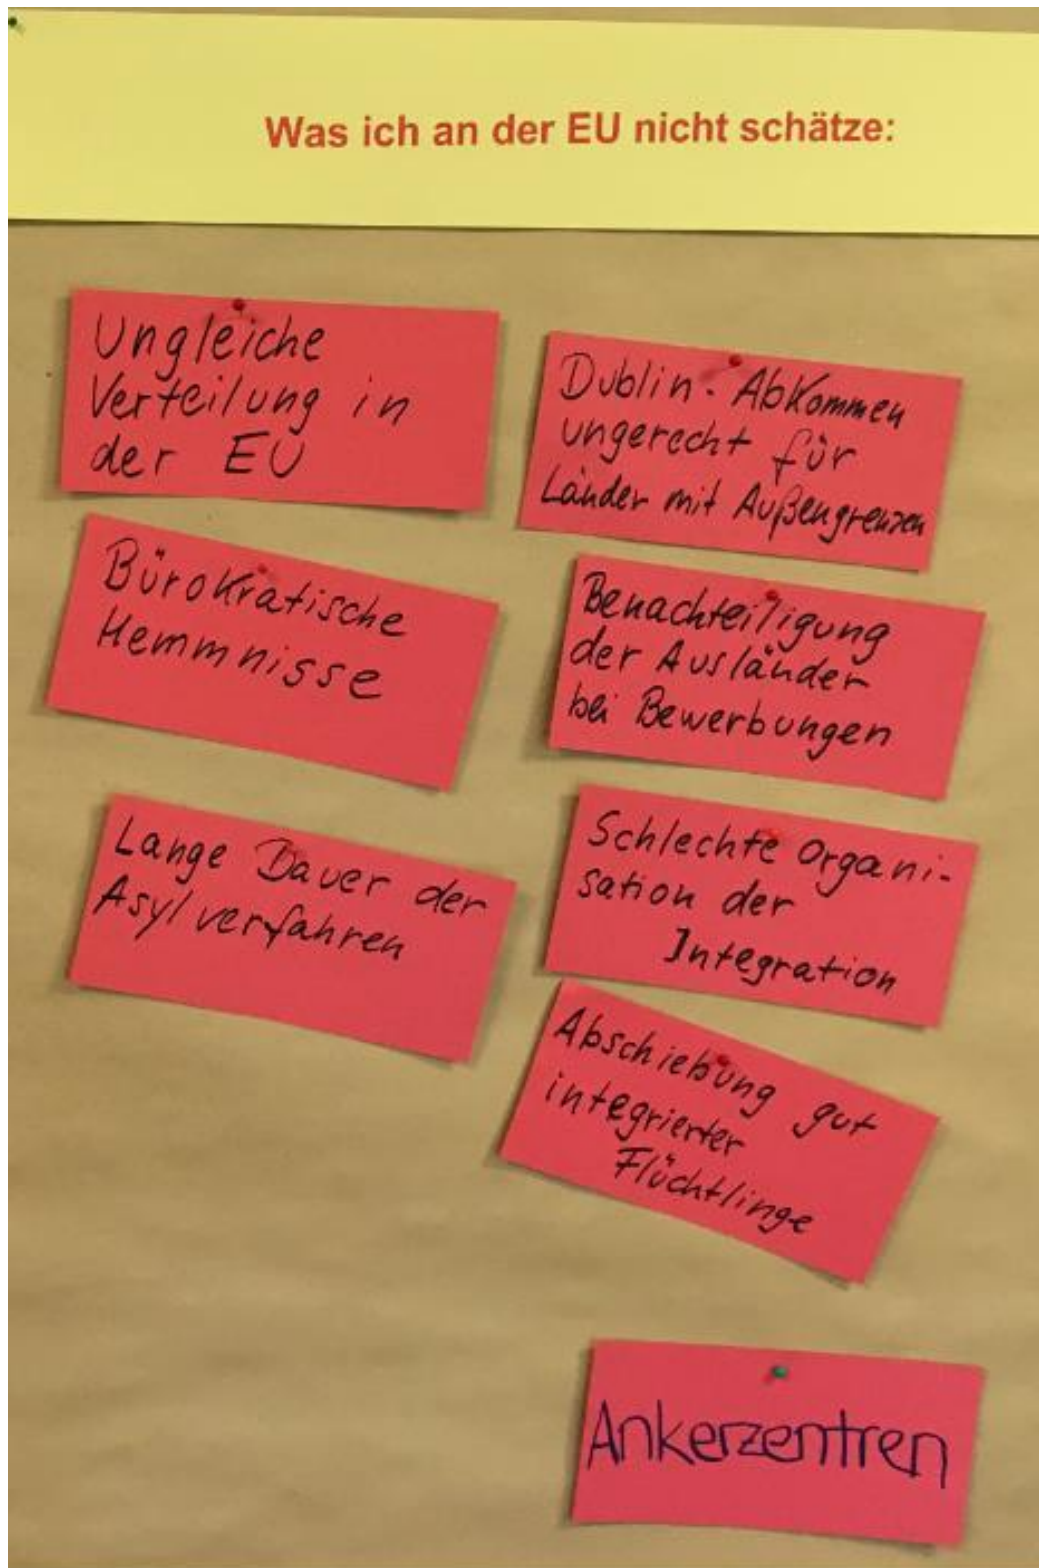 Was ich an der EU nicht schätze:
Ungleiche
Verteilung in
der EU
Bürokratische
Hemmnisse
Lange Dauer der
Asylverfahren
Dublin-Abkommen
ungerecht für
Länder mit Außengrenzen
Benachteiligung
der Ausländer
bei Bewerbungen
Schlechte Organi-
sation der
Integration
Abschiebung gut
integrierter
Flüchtlinge
Ankerzentren